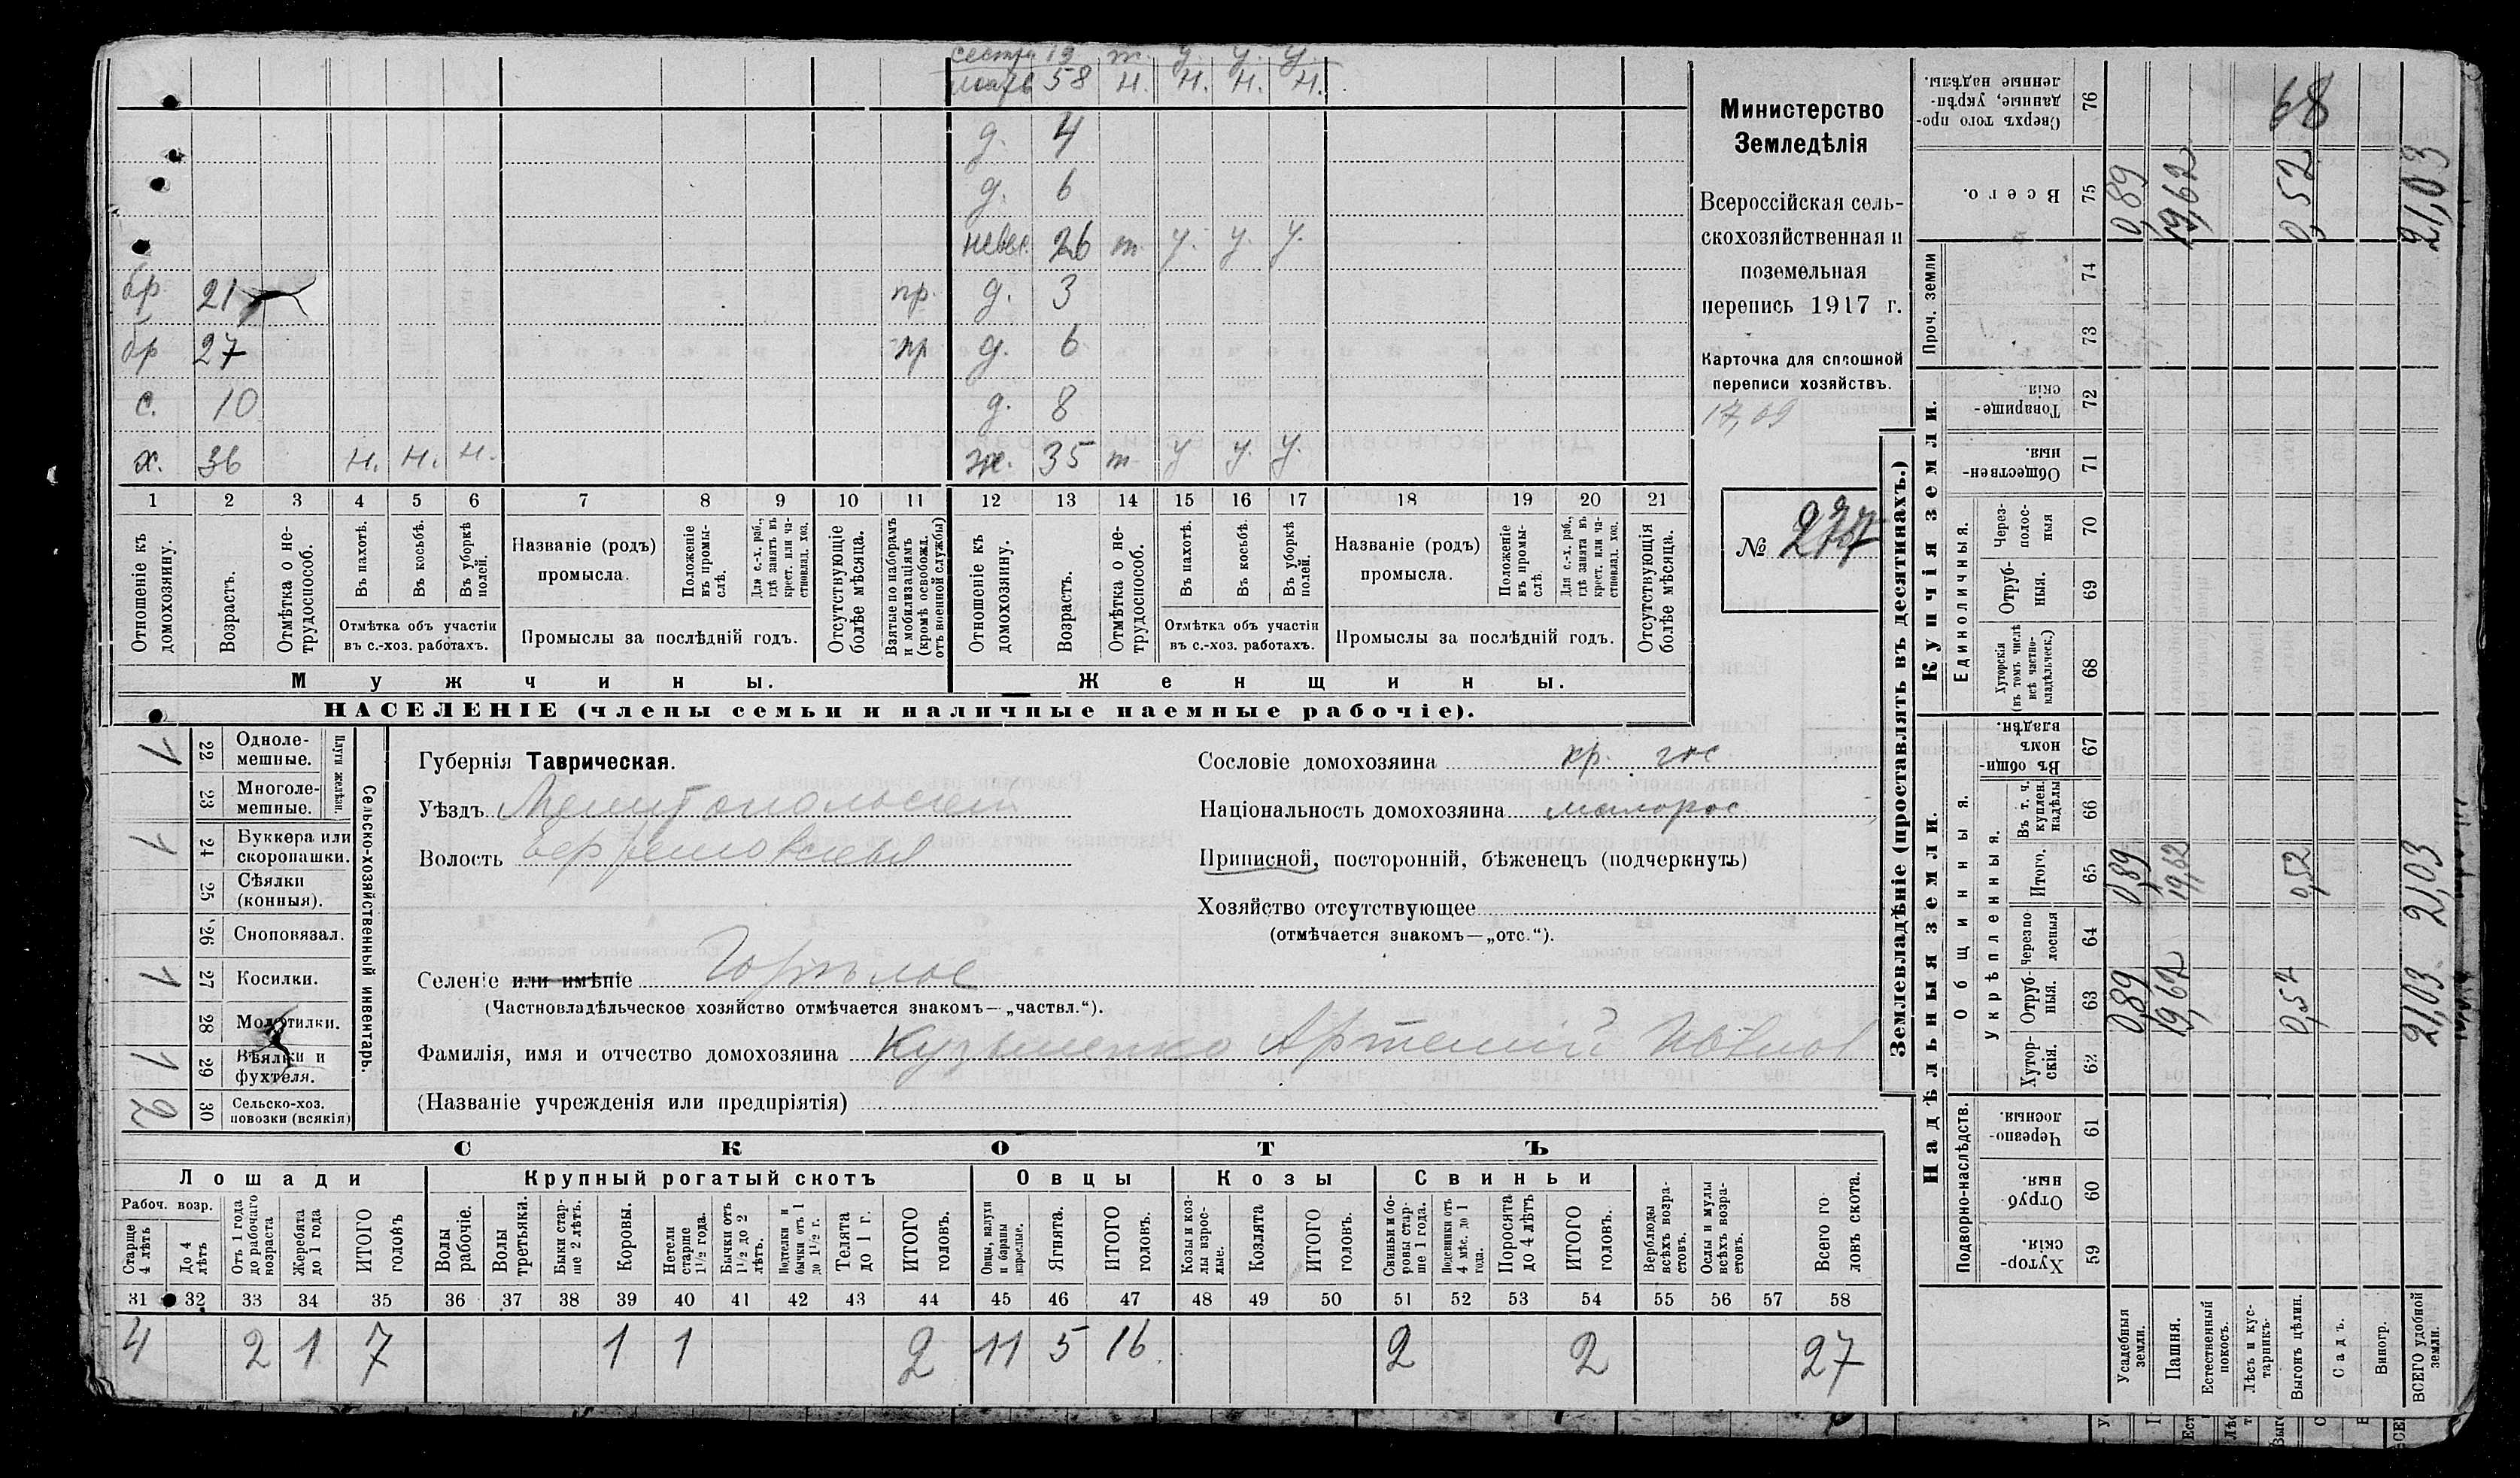 сестра 19 т. у. у. у.
мать 58 н. н. н. н.
д. 4
д. 6
невес. 26 т. у. у. у.
бр 21 пр. д. 3
бр 27 пр д. 6
с. 10 д. 8
х. 36 н. н. н. ж. 35 т у у. у.
1 2 3 4 5 6 7 8 9 10 11 12 13 14 15 16 17 18 19 20 21
Отношеніе къ домохозяину.
Возрастъ.
Отмѣтка о не-
трудоспособ.
Въ пахотѣ.
Въ косьбѣ.
Въ уборкѣ
полей.
Отмѣтка объ участіи
въ с.-хоз. работахъ.
Названіе (родъ)
промысла.
Положеніе
въ промы-
слѣ.
Для с.-х. раб.,
гдѣ занятъ въ
крест. или ча-
стновлад. хоз.
Промыслы за послѣдній годъ.
Отсутствующіе
болѣе мѣсяца.
Взятые по наборамъ
и мобилизаціямъ
(кромѣ освобожд.
отъ военной службы)
Отношеніе къ
домохозяину.
Возрастъ.
Отмѣтка о не-
трудоспособ.
Въ пахотѣ.
Въ косьбѣ.
Въ уборкѣ
полей.
Отмѣтка объ участіи
въ с.-хоз. работахъ.
Названіе (родъ)
промысла.
Положеніе
въ промы-
слѣ
Для с.-х. раб.,
гдѣ занята въ
крест. или ча-
стновлад. хоз.
Промыслы за послѣдній годъ.
Отсутствующія
болѣе мѣсяца.
Мужчины.
Женщины.
НАСЕЛЕНІЕ (члены семьи и наличные наемные рабочіе).
Министерство
Земледѣлія
Всероссійская сель-
скохозяйственная и
поземельная
перепись 1917 г.
Карточка для сплошной
переписи хозяйствъ.
17,09
№ 277
Сельско-хозяйственный инвентарь.
Плуги желѣзн.
1 22 Одноле-
мешные.
23 Многоле-
мешные.
1 24 Буккера или
скоропашки.
25 Сѣялки
(конныя).
26 Сноповязал.
1 27 Косилки.
28 Молотилки.
1 29 Вѣялки и
фухтеля.
2 30 Сельско-хоз.
повозки (всякія)
Губернія Таврическая.
Уѣздъ Мелитопольскій
Волость
Селеніе или имѣніе
(Частновладѣльческое хозяйство отмѣчается знакомъ—„частвл.“).
Фамилія, имя и отчество домохозяина Кузьменко Артемій
(Названіе учрежденія или предпріятія)
Сословіе домохозяина кр.
Національность домохозяина малорос
Приписной, посторонній, бѣженецъ (подчеркнуть)
Хозяйство отсутствующее
(отмѣчается знакомъ—„отс.“).
СКОТЪ
Лошади Крупный рогатый скотъ Овцы Козы Свиньи
Рабоч. возр.
Старше
4 лѣтъ
До 4
лѣтъ
Отъ 1 года
до рабочаго
возраста
Жеребята
до 1 года
ИТОГО
головъ
Волы
рабочіе.
Волы
третьяки.
Быки стар-
ше 2 лѣтъ.
Коровы.
Нетели
старше
1½ года.
Бычки отъ
1½ до 2
лѣтъ.
Подтелки и
бычки отъ 1
до 1½ г.
Телята
до 1 г.
ИТОГО
головъ.
Овцы, валухи
и бараны
взрослые.
Ягнята.
ИТОГО
головъ.
Козы и коз-
лы взрос-
лые.
Козлята
ИТОГО
головъ.
Свиньи и бо-
ровы стар-
ше 1 года.
Подсвинки отъ
4 мѣс. до 1
года.
Поросята
до 4 лѣтъ
ИТОГО
головъ.
Верблюды
всѣхъ возра-
стовъ.
Ослы и мулы
всѣхъ возра-
стовъ.
Всего го-
ловъ скота.
31 32 33 34 35 36 37 38 39 40 41 42 43 44 45 46 47 48 49 50 51 52 53 54 55 56 57 58
4 2 1 7 1 1 2 11 5 16 2 2 27
Землевладѣніе (проставлять въ десятинахъ.)
Купчія земли.
Надѣльныя земли.
Сверхъ того про-
данные, укрѣп-
ленные надѣлы.
76
68
Всего.
75 0,89 19,62 0,52 21,03
Проч. земли
74
73
Товарище-
скія
72
Обществен-
ныя.
71
Единоличныя.
Через-
полос-
ныя
70
Отруб-
ныя.
69
Хуторскія
(въ томъ числѣ
всѣ частно-
владѣльческ.)
68
Общинныя.
Въ общи-
номъ
владѣн.
67
Укрѣпленныя.
Въ т. ч.
куплен.
надѣлы
66
Итого.
65 0,89 19,62 0,52 21,03
Черезпо-
лосныя
64
Отруб-
ныя.
63 0,89 19,62 0,52 21,03
Хутор-
скія.
62
Подворно-наслѣдств.
Черезпо-
лосныя.
61
Отруб
ныя.
60
Хутор-
скія.
59
Усадебныя
земли.
Пашня.
Естественный
покосъ.
Лѣсъ и кус-
тарникъ.
Выгонъ цѣлин.
Садъ.
Виногр.
ВСЕГО удобной
земли.